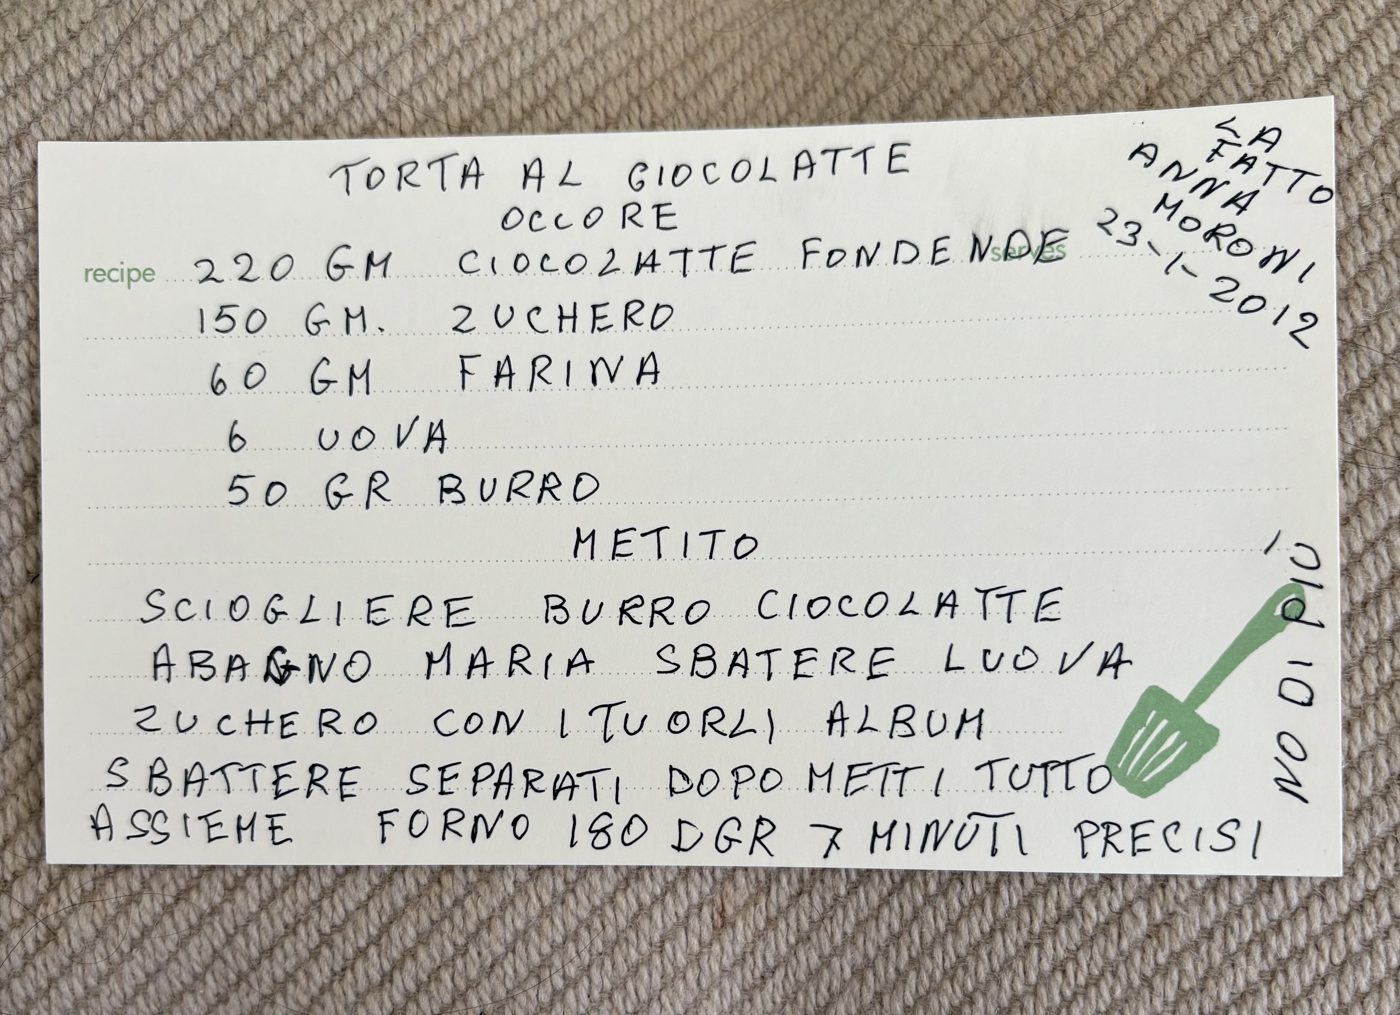 TORTA AL GIOCOLATTE
OCCORE
recipe 220 GM CIOCOLATTE FONDENDE serves
150 GM. ZUCHERO
60 GM FARINA
6 UOVA
50 GR BURRO
METITO
SCIOGLIERE BURRO CIOCOLATTE
ABAGNO MARIA SBATERE LUOVA
ZUCHERO CON I TUORLI ALBUM
SBATTERE SEPARATI DOPO METTI TUTTO
ASSIEME FORNO 180 DGR 7 MINUTI PRECISI
NO DI PIU
LA
FATTO
ANNA
MORONI
23-1-2012